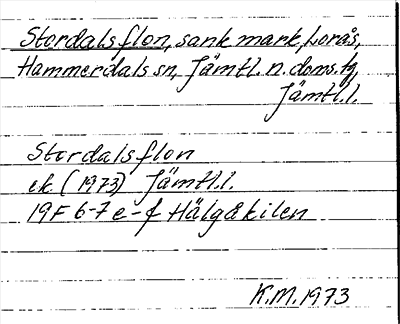 Stordalsflon, sank mark, Lorås,
Hammerdals sn, Jämtl. n. doms. tg,
Jämtl.l.
Stordalsflon
ek (1973) Jämtl.l.
19F 6-7 e-f Hälgåkilen
K.M. 1973